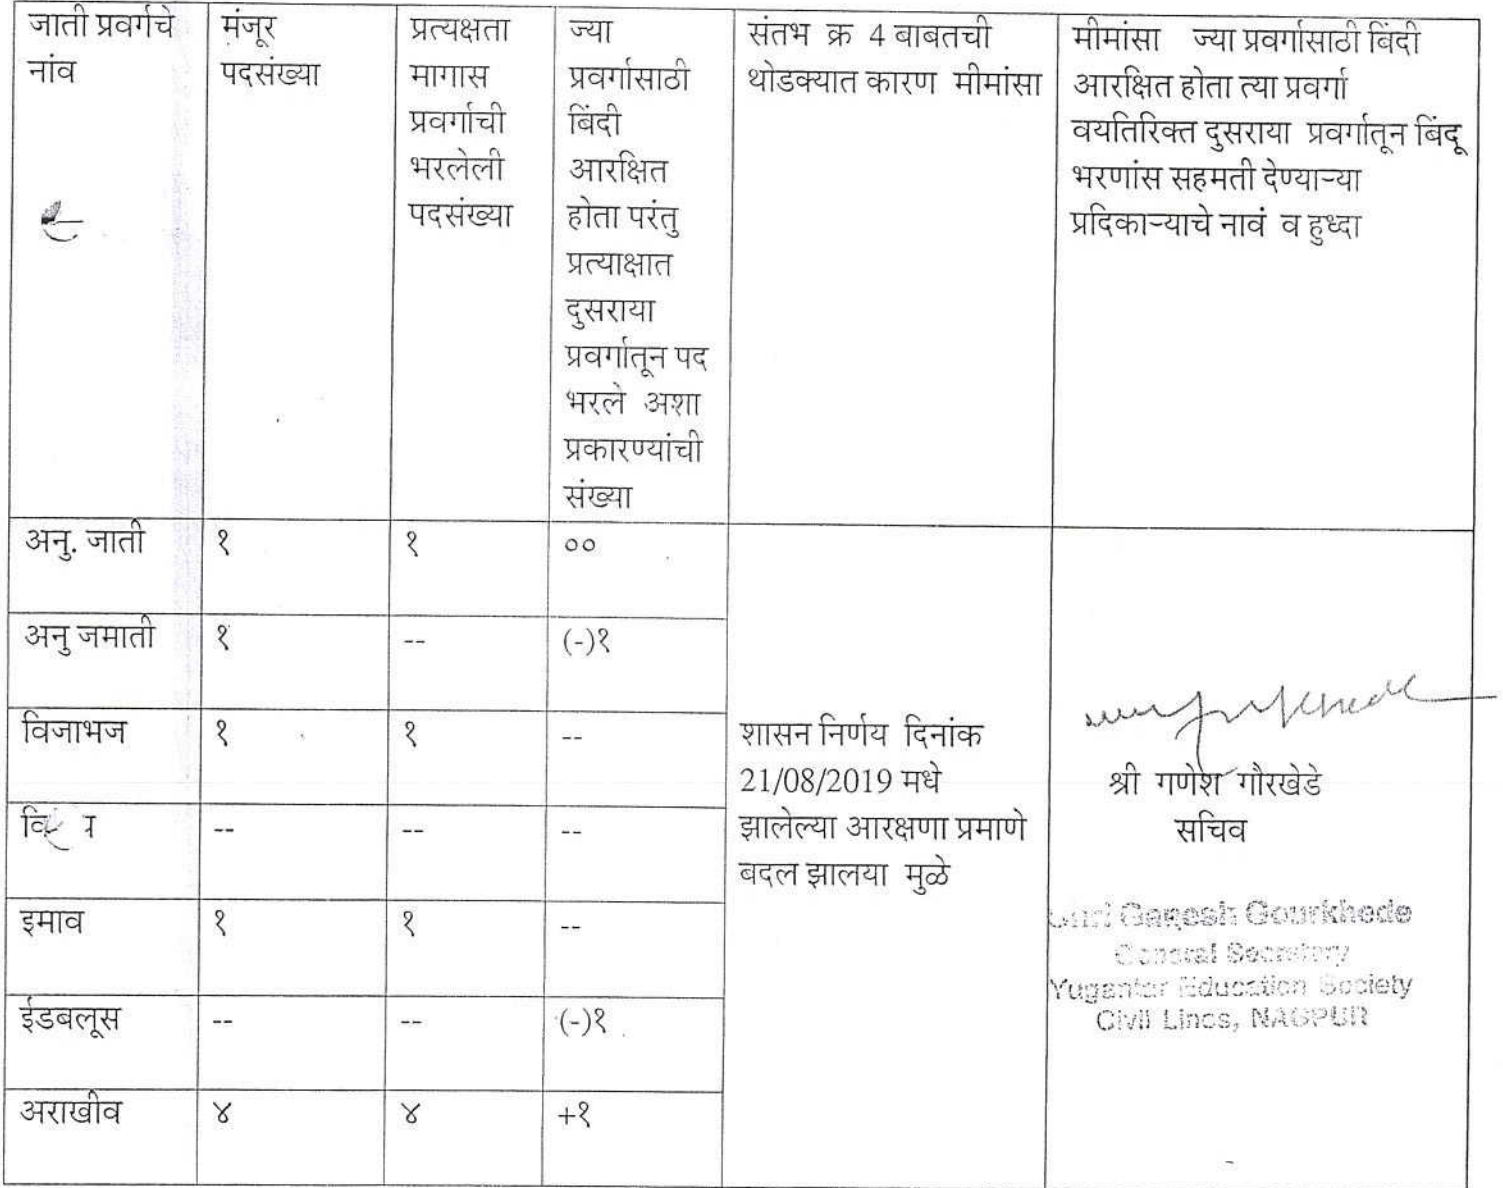 जाती प्रवर्गचे
नांव
मंजूर
पदसंख्या
प्रत्यक्षता
मागास
प्रवर्गाची
भरलेली
पदसंख्या
ज्या
प्रवर्गासाठी
बिंदी
आरक्षित
होता परंतु
प्रत्याक्षात
दुसराया
प्रवर्गातून पद
भरले अशा
प्रकारण्यांची
संख्या
संतभ क्र 4 बाबतची
थोडक्यात कारण मीमांसा
मीमांसा ज्या प्रवर्गासाठी बिंदी
आरक्षित होता त्या प्रवर्गा
वयतिरिक्त दुसराया प्रवर्गातून बिंदू
भरणांस सहमती देण्याऱ्या
प्रदिकाऱ्याचे नावं व हुध्दा
अनु. जाती १ १ ००
अनु जमाती १ -- (-)१
विजाभज १ १ --
-- -- --
इमाव १ १ --
ईडबलूस -- -- (-)१
अराखीव ४ ४ +१
शासन निर्णय दिनांक
21/08/2019 मधे
झालेल्या आरक्षणा प्रमाणे
बदल झालया मुळे
श्री गणेश गौरखेडे
सचिव
Ganesh Gourkhede
General Secretary
Yugantar Education Society
Civil Lines, NAGPUR